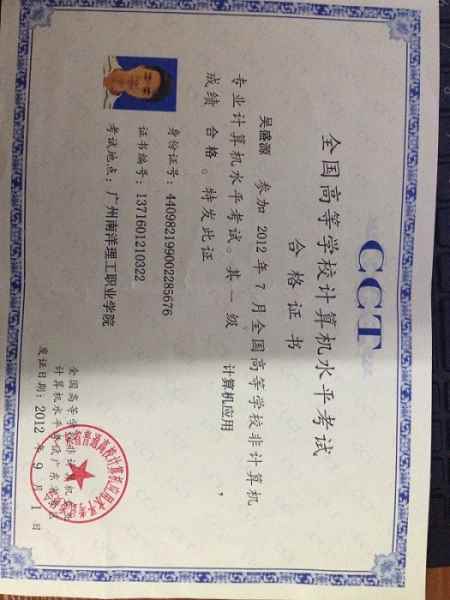 CCT
全国高等学校计算机水平考试
合格证书
吴盛源 参加 2012 年 7 月全国高等学校非计算机
专业计算机水平考试。其一级 计算机应用 ，
成绩 合格 。特发此证
身份证号：440982199002285676
证书编号：1371601210322
考试地点：广州南洋理工职业学院
全国高等学校非计算机
计算机水平考试广东
发证日期：2012 年 9 月 1 日